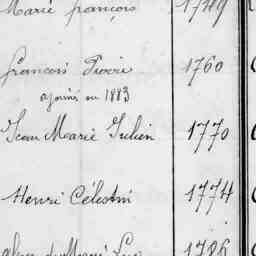 Marie françois 1749
françois Pierre 1760
ajourné en 1883
Jean Marie Julien 1770
Henri Célestin 1774
Marie 1786